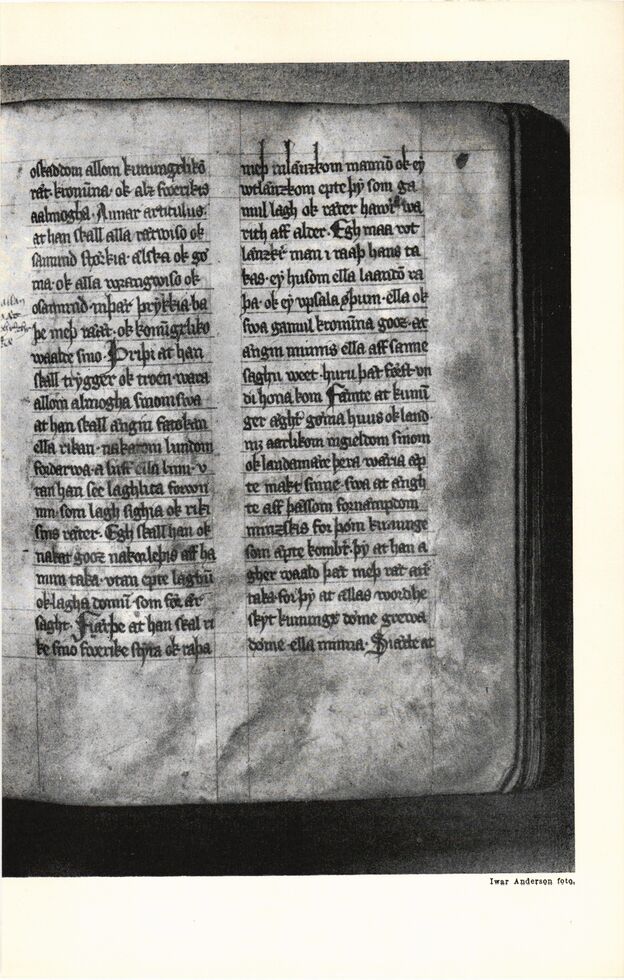 oskaddom allom kunungzlikō
ræt kronūna ok alz swerikis
aalmogha · Annar articulus
at han skall alla rætwiso ok
sanūnd størkia ælska ok gø
ma · ok alla wrangwiso ok
osanūnd niþar þrykkia ba
þe meþ rææt · ok konūgzliko
waalde sino · Þriþi at han
skall trygger ok troen wara
allom almogha sinom swa
at han skall ængin fatøkan
ella rikan · nakrom lundom
fordærwa a liff ella limi · v
tan han see laghlica forwn
nin · som lagh sighia ok riki
sins rætter · Egh skall han ok
nakat gooz nakorleþis aff ha
num taka · vtan epte laghū
ok lagha domū · som før ær
saght · Fiærþe at han skal ri
ke sino swerike styra ok raþa
meþ inlænzkom mannō ok ey
wtlænzkom epte þy som ga
mul lagh ok ræter hawr wa
rith aff alder · Egh maa wt
lænzkr man i raaþ hans ta
kas · ey husom ella laandō ra
þa · ok ey vpsala øþum · ella ok
swa gamul kronūna gooz · at
ængin minnis ella aff sanne
saghu weet · huru þæt først vn
di hona kom · Fæmte at kunū
ger æght gøma huus ok land ·
miz aarlikom ingieldom sinom
ok landamære þera waria æp
te makt sinne · swa at ængh
te aff þæssom fornæmpdom
minzskis for þom kununge
som æpte kombr · þy at han a
gher waald þæt meþ ræt atr
taka · for þy at allæs wordhe
skyt kunungx døme grewa
døme ella minna · Siætte at
Iwar Anderson foto.